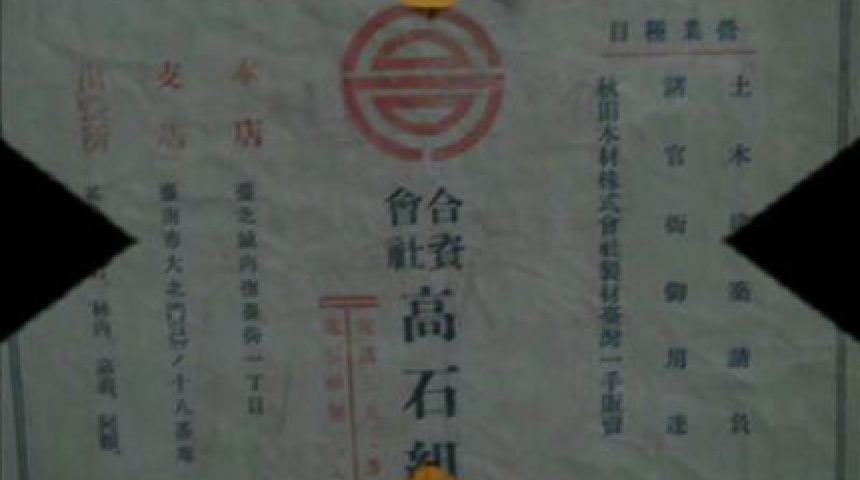 營業種目
土木建築請負
諸官衙御用達
秋田木材株式會社製材臺灣一手販賣
合資
會社
高石組
本店
臺北城內撫臺街一丁目
支店
臺南市大北門
ノ十八番地
出張所
林內、嘉義、阿緱、